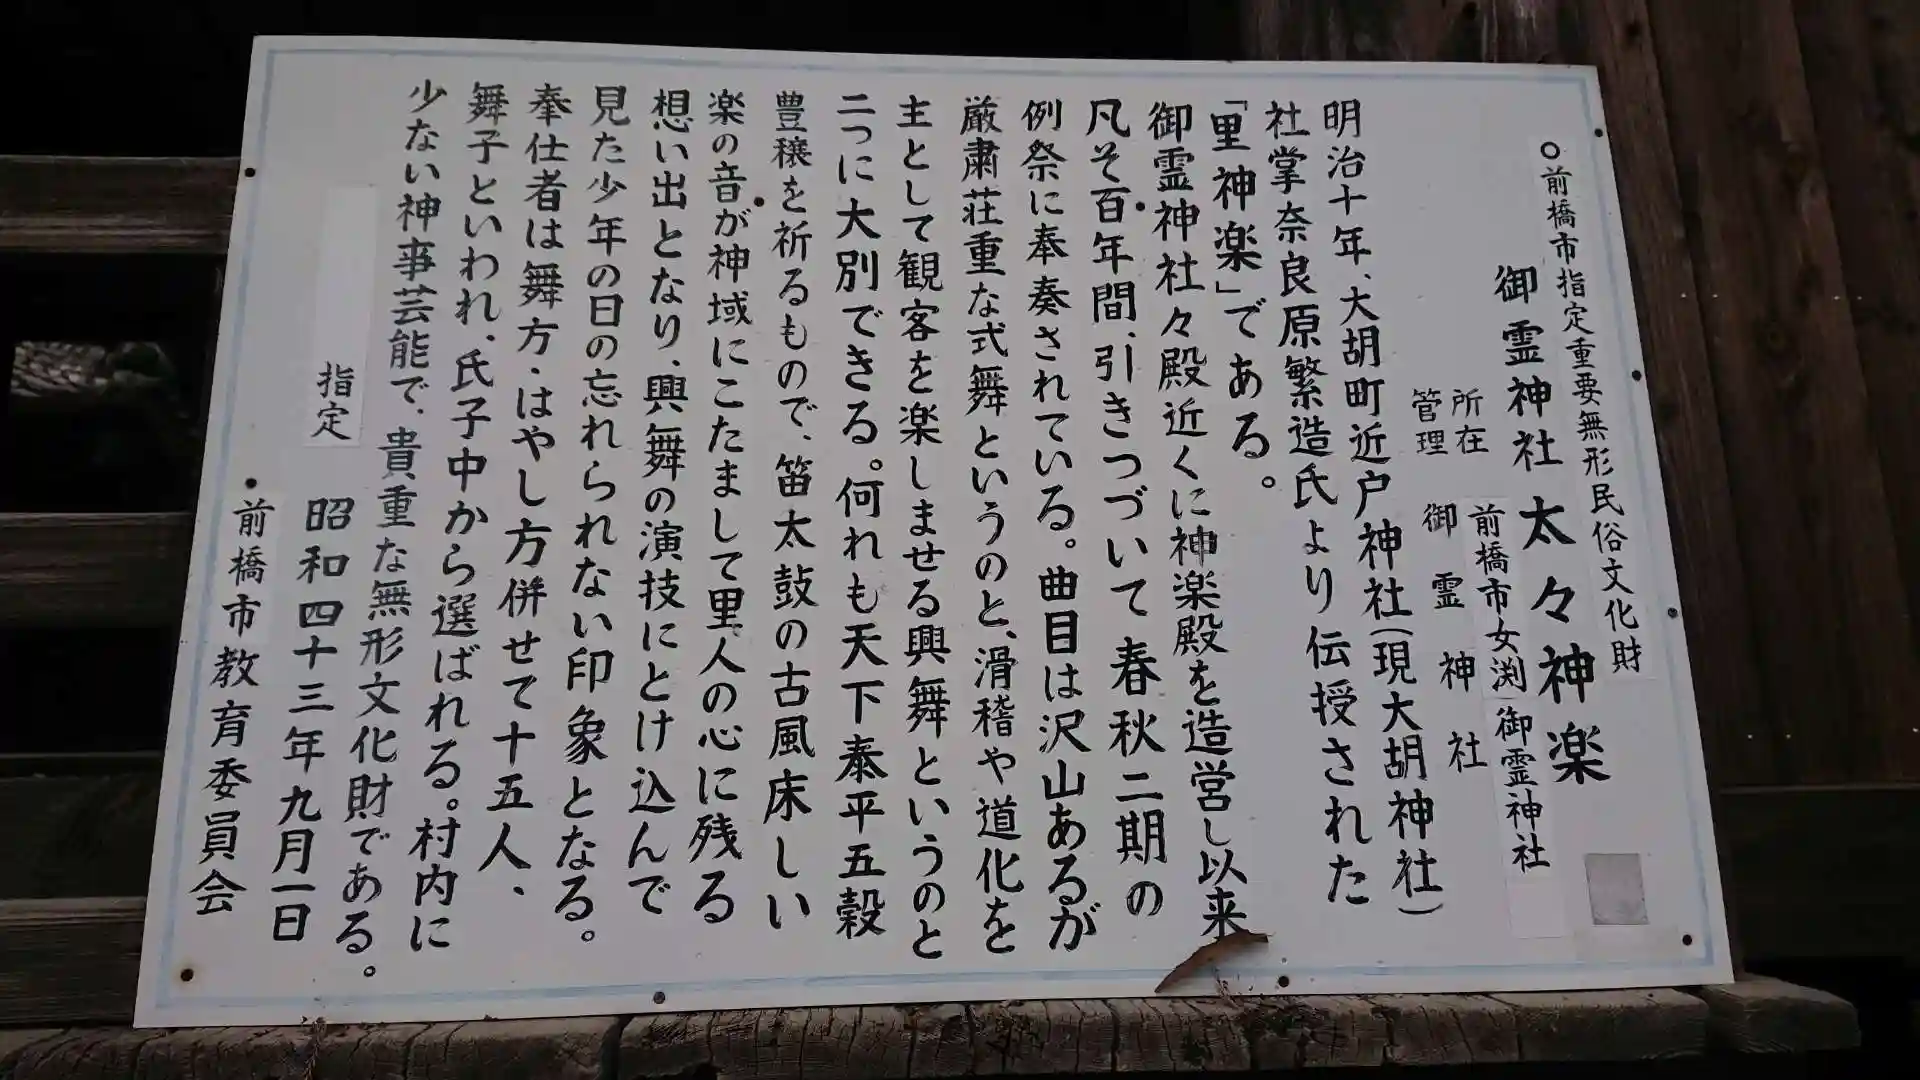 ○前橋市指定重要無形民俗文化財
御霊神社太々神楽
所在 前橋市女渕 御霊神社
管理 御霊神社
明治十年、大胡町近戸神社(現大胡神社)
社掌奈良原繁造氏より伝授された
「里神楽」である。
御霊神社々殿近くに神楽殿を造営し以来
凡そ百年間、引きつづいて春秋二期の
例祭に奉奏されている。曲目は沢山あるが
厳粛荘重な式舞というのと、滑稽や道化を
主として観客を楽しませる興舞というのと
二つに大別できる。何れも天下泰平五穀
豊穣を祈るもので、笛太鼓の古風床しい
楽の音が神域にこたまして里人の心に残る
想い出となり、興舞の演技にとけ込んで
見た少年の日の忘れられない印象となる。
奉仕者は舞方・はやし方併せて十五人、
舞子といわれ、氏子中から選ばれる。村内に
少ない神事芸能で、貴重な無形文化財である。
指定 昭和四十三年九月一日
前橋市教育委員会